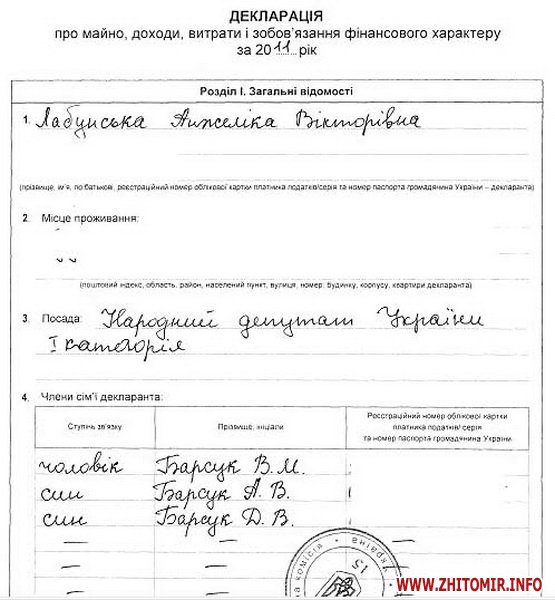 ДЕКЛАРАЦІЯ
про майно, доходи, витрати і зобов'язання фінансового характеру
за 2011 рік
Розділ І. Загальні відомості
1. Лабунська Анжеліка Вікторівна
(прізвище, ім'я, по батькові, реєстраційний номер облікової картки платника податків/серія та номер паспорта громадянина України – декларанта)
2. Місце проживання:
(поштовий індекс, область, район, населений пункт, вулиця, номер: будинку, корпусу, квартири декларанта)
3. Посада: Народний депутат України
І категорія
4. Члени сім'ї декларанта:
Ступінь зв'язку
Прізвище, ініціали
Реєстраційний номер облікової картки
платника податків/ серія
та номер паспорта громадянина України
чоловік Барсук В. М.
син Барсук А. В.
син Барсук Д. В.
— —
— —
— —
комісія * Україна
15
WWW.ZHITOMIR.INFO